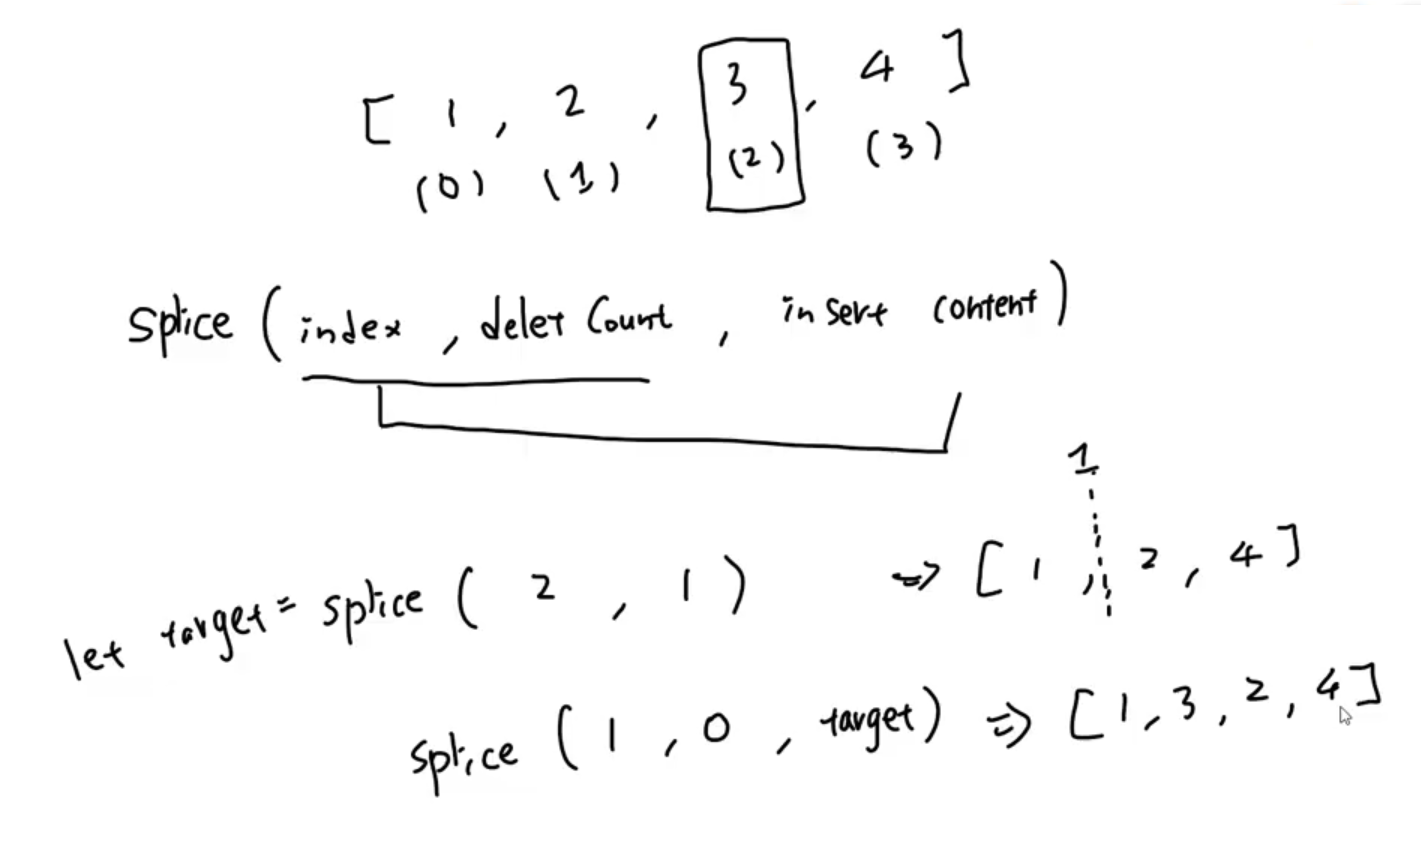 [ 1 , 2 , 3 , 4 ]
(0) (1) (2) (3)
splice ( index , delet Count , insert content )
1
let target = splice ( 2 , 1 ) => [ 1 , 2 , 4 ]
splice ( 1 , 0 , target ) => [ 1 , 3 , 2 , 4 ]